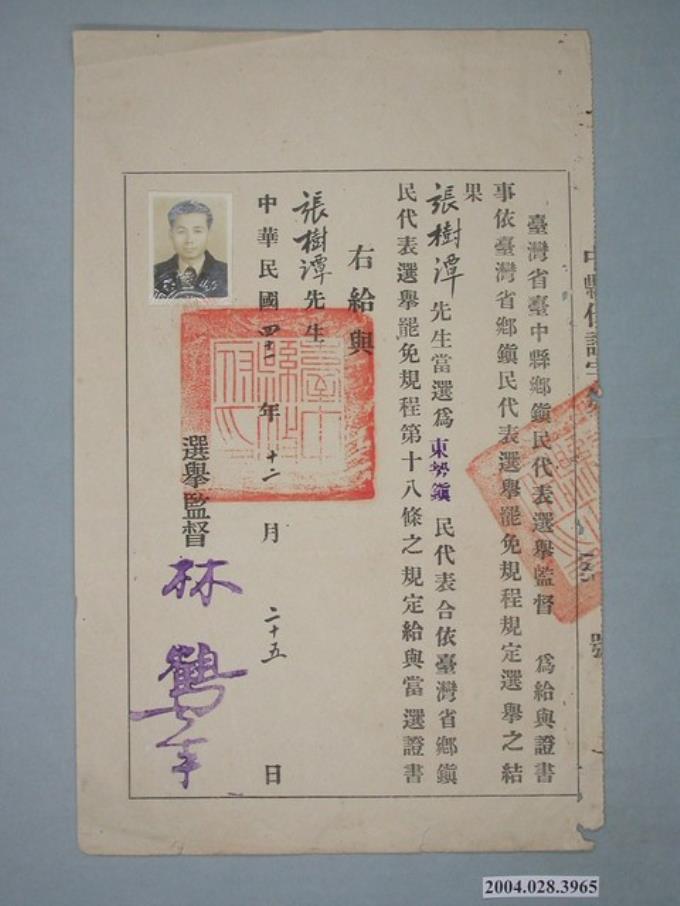 臺灣省臺中縣鄉鎮民代表選舉監督　為給與證書
事依臺灣省鄉鎮民代表選舉罷免規程規定選舉之結
果
張樹潭先生當選為東勢鎮民代表合依臺灣省鄉鎮
民代表選舉罷免規程第十八條之規定給與當選證書
右給與
張樹潭先生
中華民國四十一年十二月二十五日
選舉監督
林鶴年
2004.028.3965